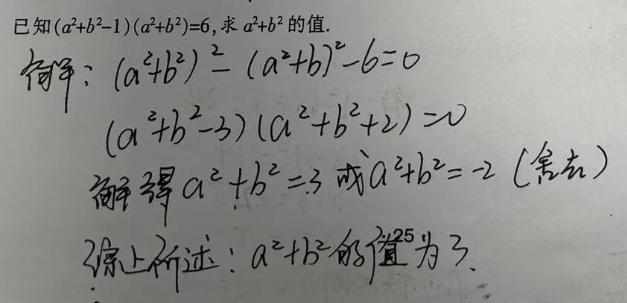 已知(a²+b²-1)(a²+b²)=6,求 a²+b² 的值.
解：(a²+b²)²-(a²+b)²-6=0
(a²+b²-3)(a²+b²+2)=0
解得 a²+b²=3 或 a²+b²=-2 (舍去)
综上所述：a²+b² 的值25为3.